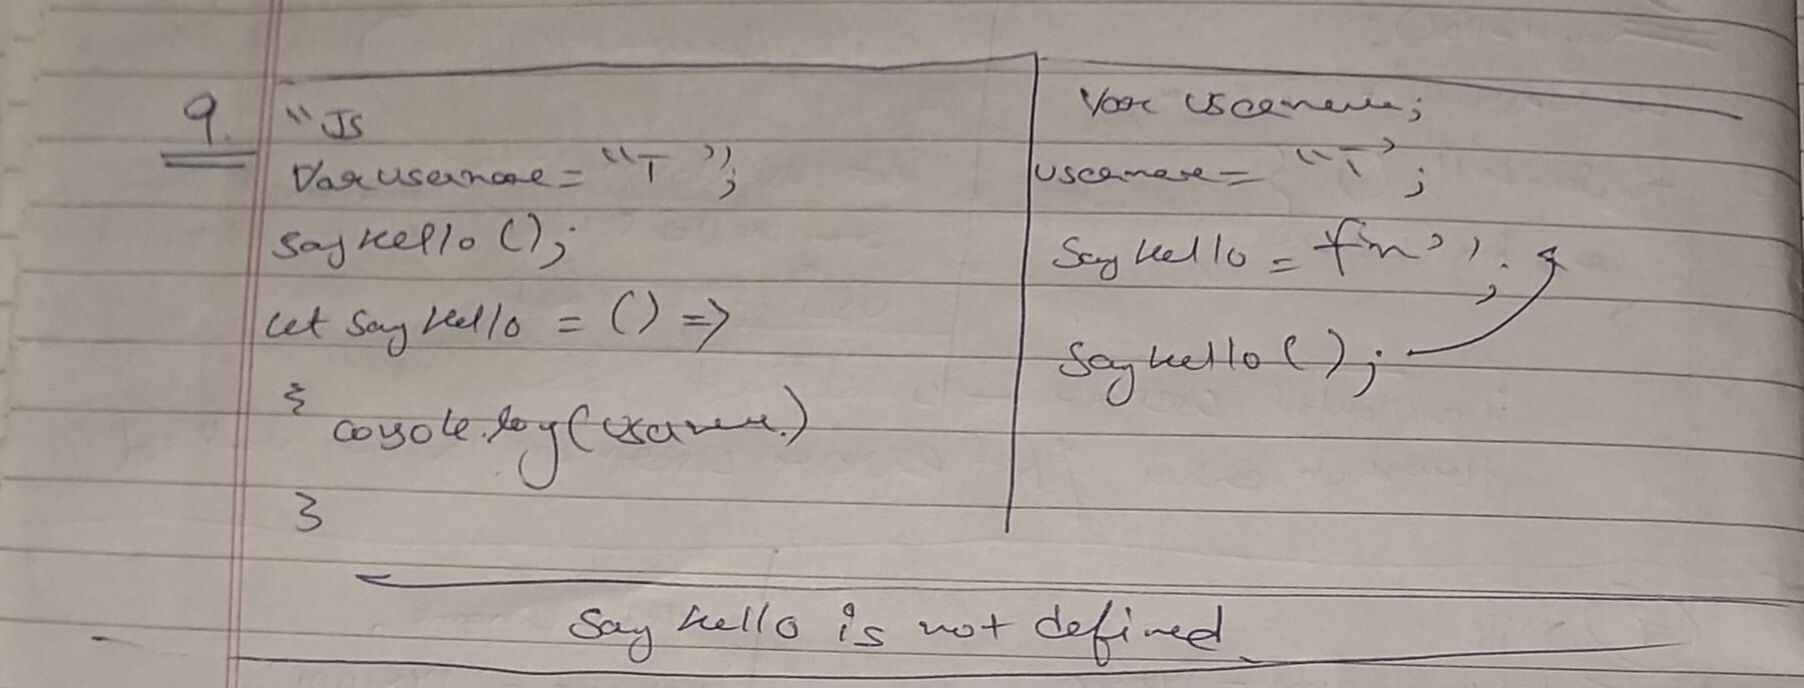 9.
"JS
Var username = "T";
sayHello();
let sayHello = () =>
{
console.log(username)
}
Var username;
username = "T";
SayHello = fn";
SayHello();
SayHello is not defined